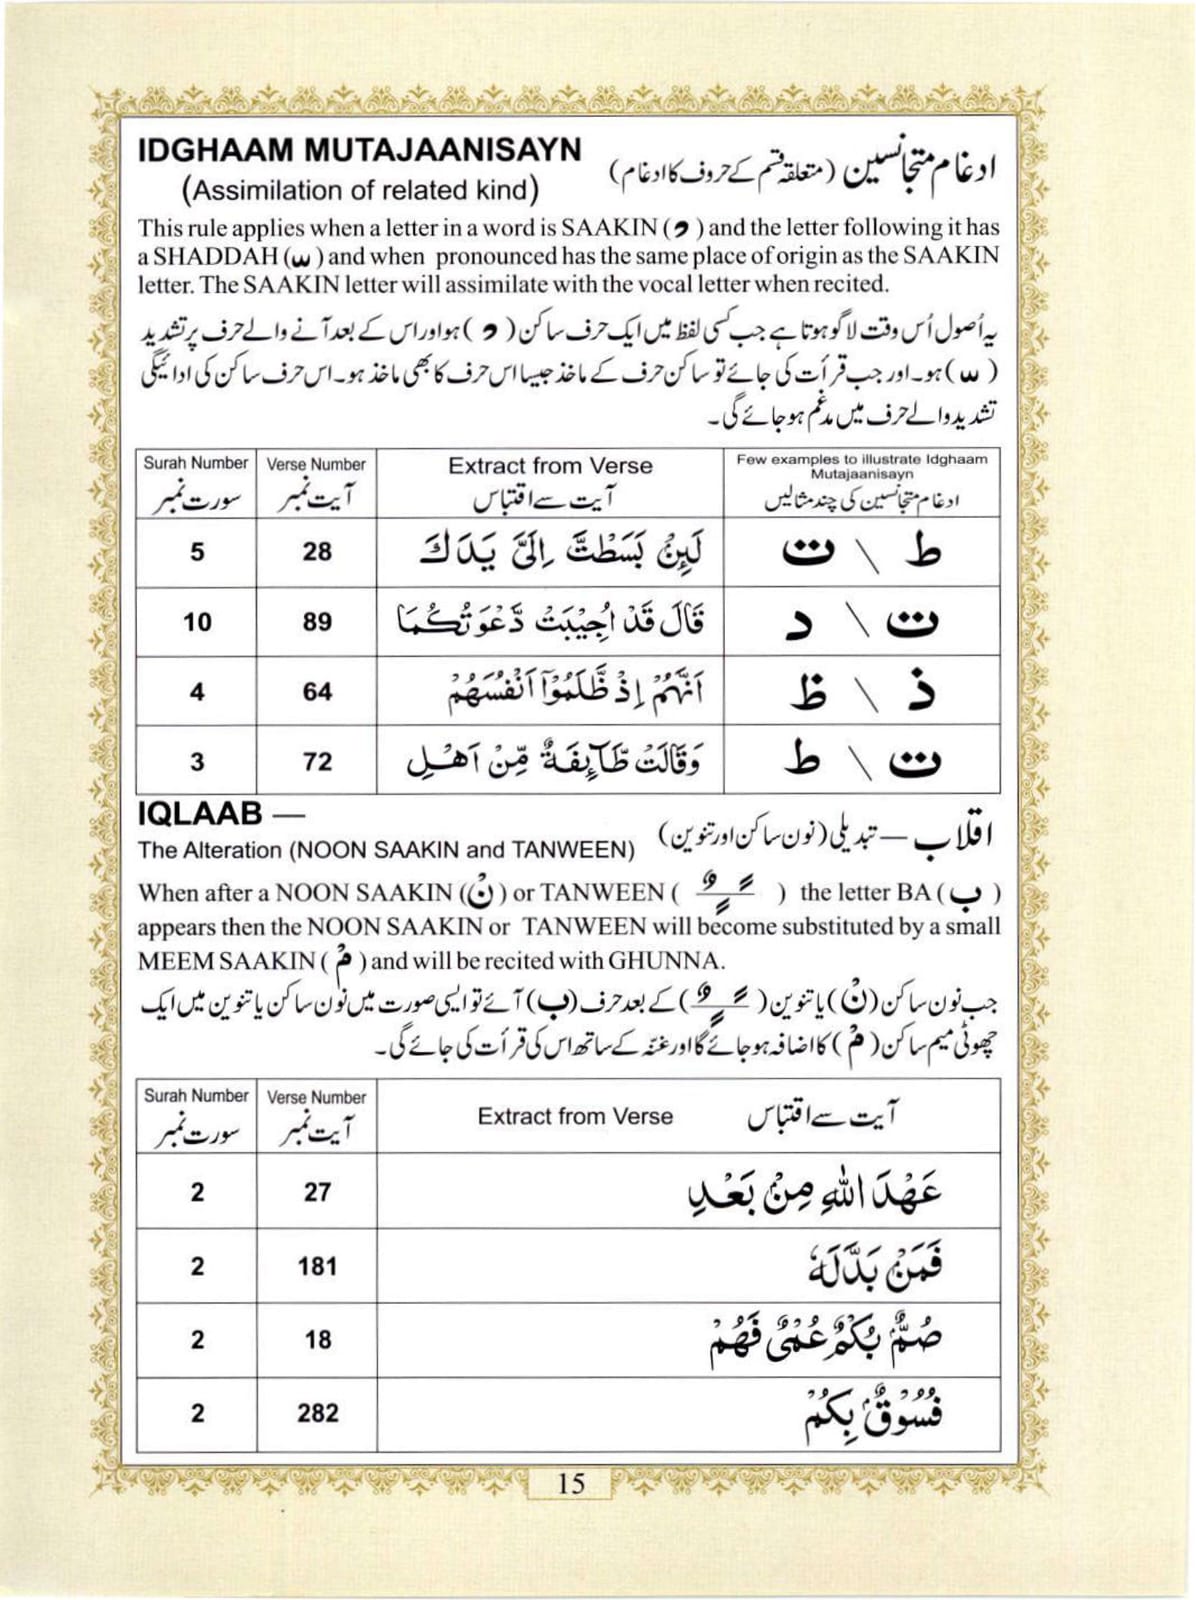 IDGHAAM MUTAJAANISAYN
(Assimilation of related kind)
ادغام متجانسین (متعلقہ قسم کے حروف کا ادغام)
This rule applies when a letter in a word is SAAKIN ( ) and the letter following it has
a SHADDAH ( ّ ) and when pronounced has the same place of origin as the SAAKIN
letter. The SAAKIN letter will assimilate with the vocal letter when recited.
یہ اُصول اُس وقت لاگو ہوتا ہے جب کسی لفظ میں ایک حرف ساکن ( ) ہو اور اس کے بعد آنے والے حرف پر تشدید
( ّ ) ہو۔ اور جب قرأت کی جائے تو ساکن حرف کے ماخذ جیسا اس حرف کا بھی ماخذ ہو۔ اس حرف ساکن کی ادائیگی
تشدید والے حرف میں مدغم ہو جائے گی۔
Surah Number Verse Number Extract from Verse Few examples to illustrate Idghaam
Mutajaanisayn
سورت نمبر آیت نمبر آیت سے اقتباس ادغام متجانسین کی چند مثالیں
5 28 لَئِنْۢ بَسَطْتَّ اِلَیَّ یَدَكَ ط \ ت
10 89 قَالَ قَدْ اُجِیْبَتْ دَّعْوَتُكُمَا ت \ د
4 64 اَنَّهُمْ اِذْ ظَّلَمُوْۤا اَنْفُسَهُمْ ذ \ ظ
3 72 وَقَالَتْ طَّآئِفَةٌ مِّنْ اَهْلِ ت \ ط
IQLAAB —
The Alteration (NOON SAAKIN and TANWEEN)
اقلاب — تبدیلی (نون ساکن اور تنوین)
When after a NOON SAAKIN (نْ) or TANWEEN ( ً ٍ ٌ ) the letter BA ( ب )
appears then the NOON SAAKIN or TANWEEN will become substituted by a small
MEEM SAAKIN ( مْ ) and will be recited with GHUNNA.
جب نون ساکن (نْ) یا تنوین ( ً ٍ ٌ ) کے بعد حرف (ب) آئے تو ایسی صورت میں نون ساکن یا تنوین میں ایک
چھوٹی میم ساکن ( مْ ) کا اضافہ ہو جائے گا اور غنّہ کے ساتھ اس کی قرأت کی جائے گی۔
Surah Number Verse Number Extract from Verse آیت سے اقتباس
سورت نمبر آیت نمبر
2 27 عَهْدَ اللّٰهِ مِنْۢ بَعْدِ
2 181 فَمَنْۢ بَدَّلَهٗ
2 18 صُمٌّۢ بُكْمٌ عُمْیٌ فَهُمْ
2 282 فُسُوْقٌۢ بِكُمْ
15